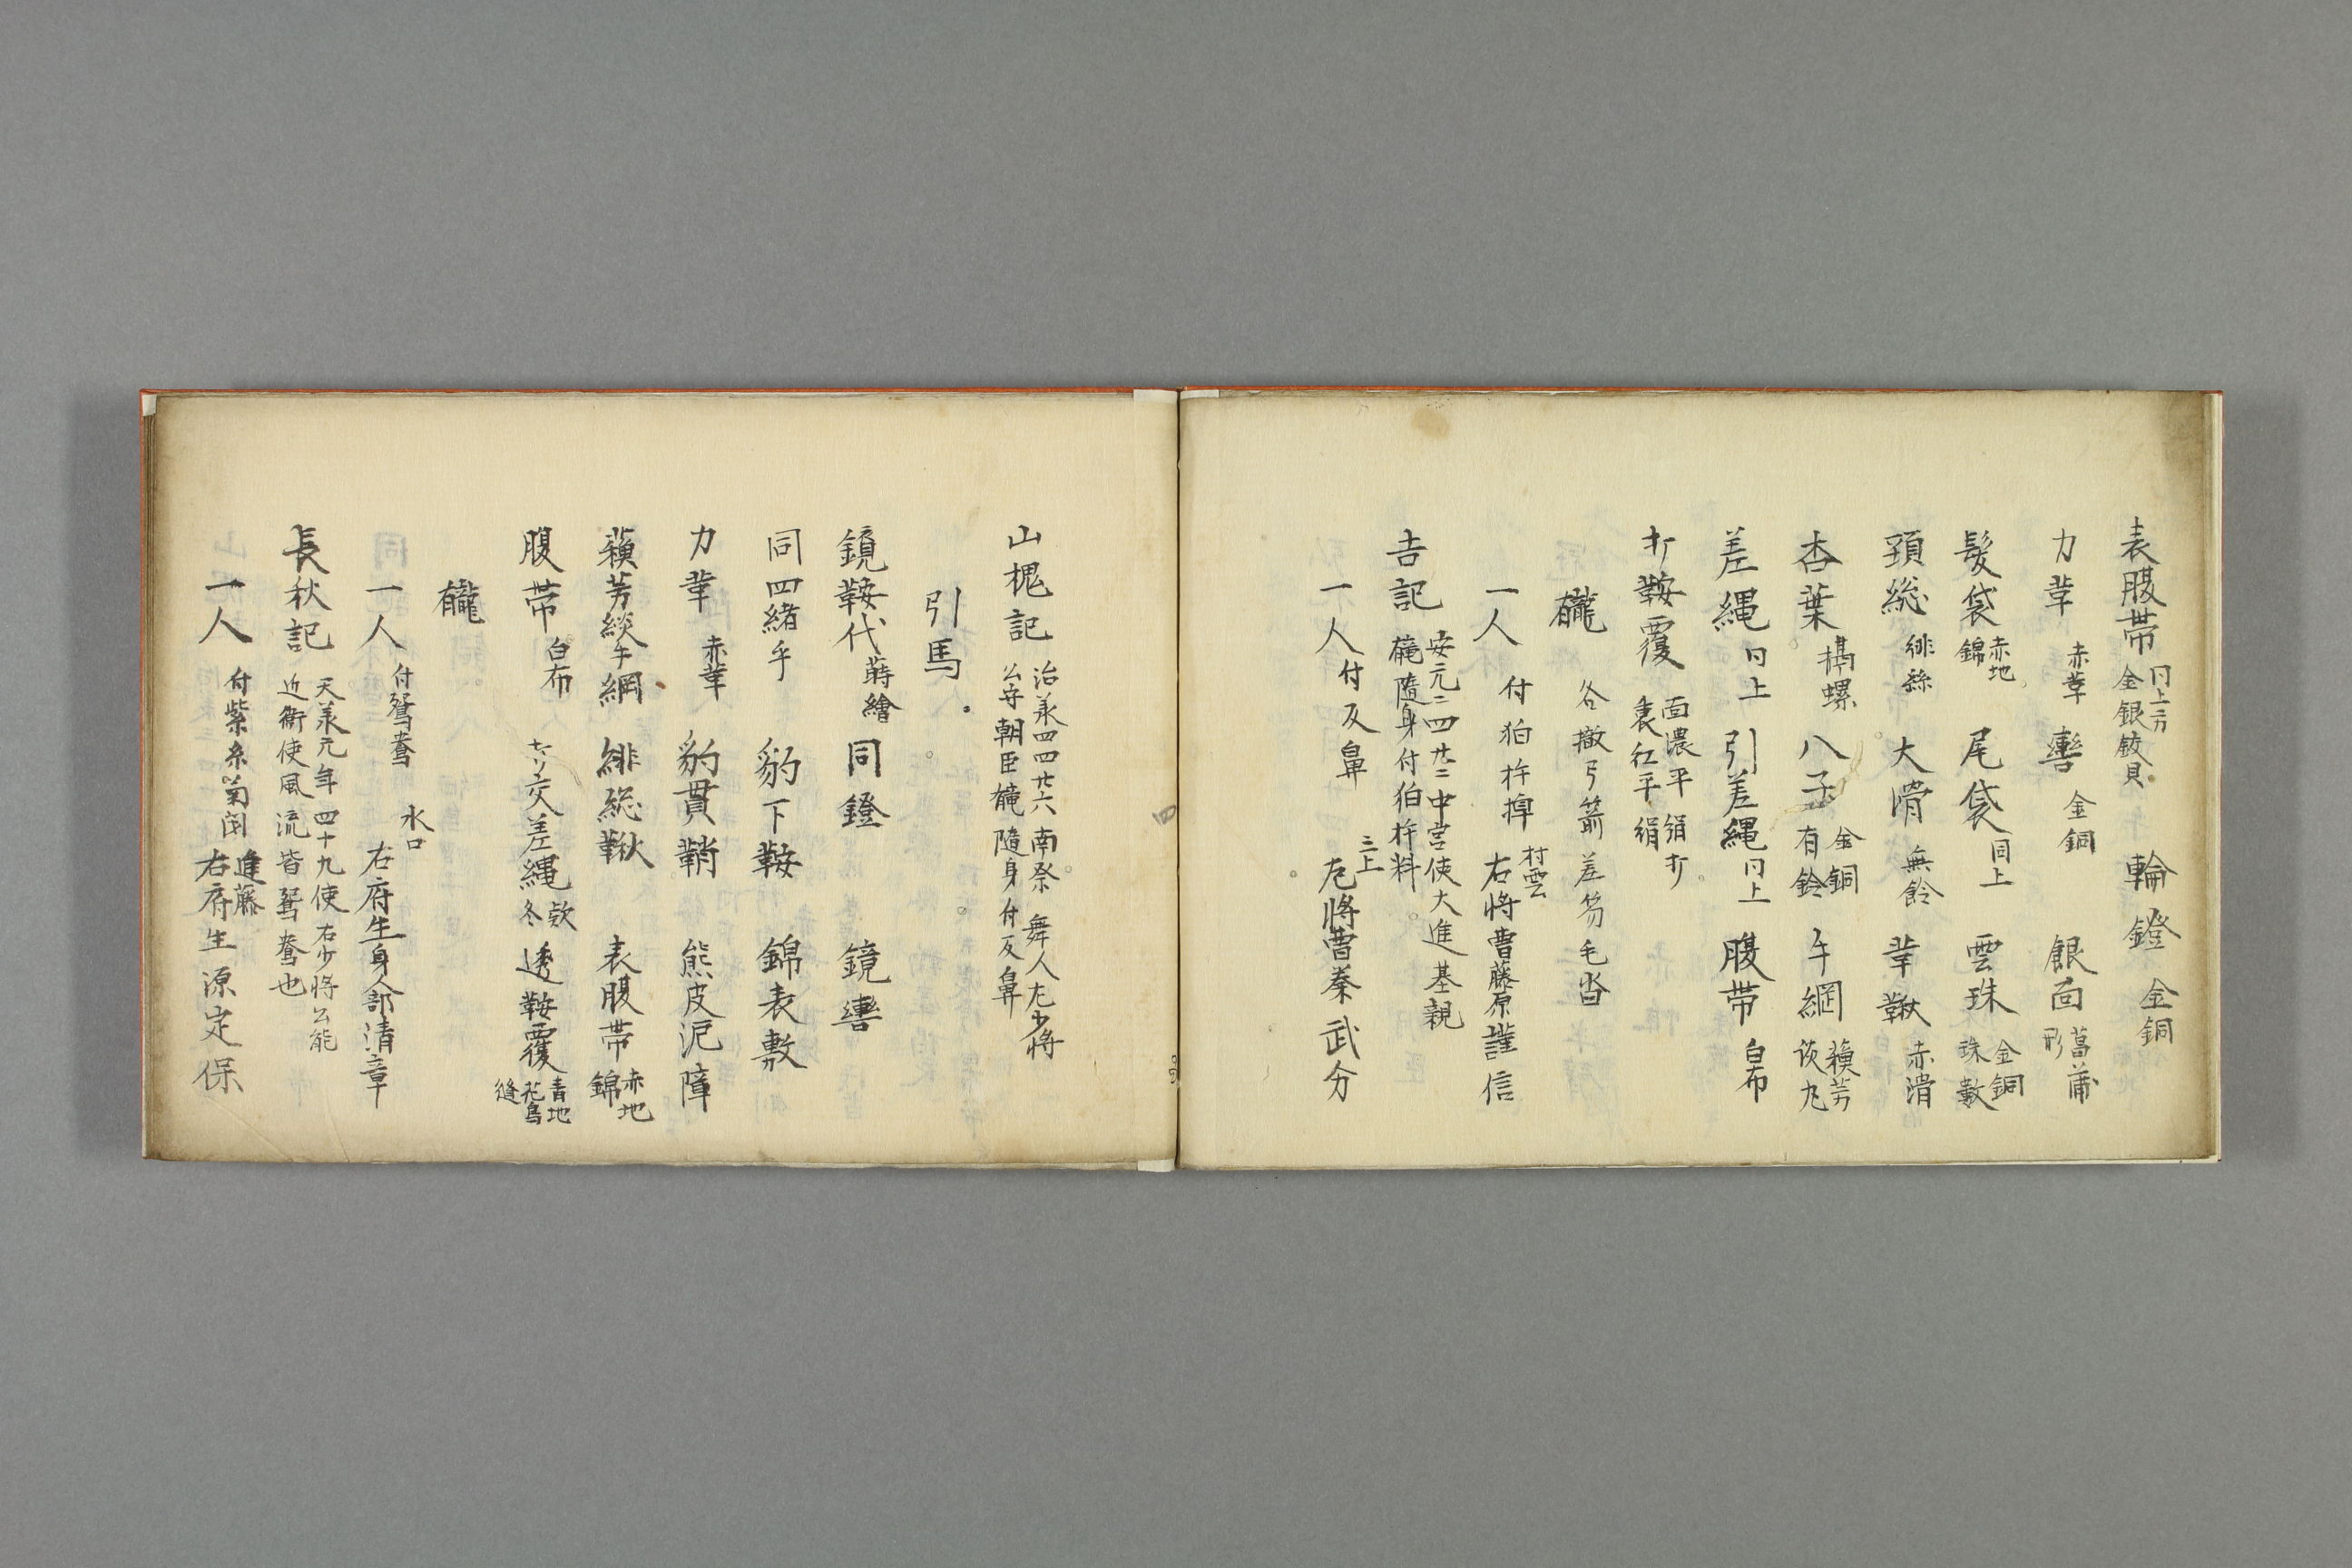 表腹帯 金銀鉸具 輪鐙 金銅
力革 赤革 轡 金銅 銀面 菖蒲形
髪袋 赤地錦 尾袋 同上 雲珠 金銅珠數
頚総 緋絲 大滑 無鈴 革鞦 赤滑
杏葉 螺 八子 金銅有鈴 手綱 蘓芳
差縄 同上 引差縄 同上 腹帯 白布
打鞍覆 面濃平絹打 裏紅平絹
龓 各撤弓箭差笏毛沓
一人 付狛杵 村雲 右將曹藤原謹信
吉記 安元二四廿二中宮使大進基親 龓隨身付伯杵料
一人 付反鼻 三上 左將曹秦武分
山槐記 治承四四廿六南祭 舞人左少將公守朝臣龓隨身付反鼻
引馬
鏡鞍代 蒔繪 同鐙 鏡轡
同四緒手 豹下鞍 錦表敷
力革 赤革 豹貫鞘 熊皮泥障
蘓芳綫手綱 緋総鞦 表腹帯 赤地錦
腹帯 白布 交差縄 透鞍覆 青地花鳥縫
龓
一人 付鴛鴦 水口 右府生身人部清章
長秋記 天承元年四十九使右少將公能 近衛使風流皆鴛鴦也
一人 付紫糸菊 進藤 右府生源定保